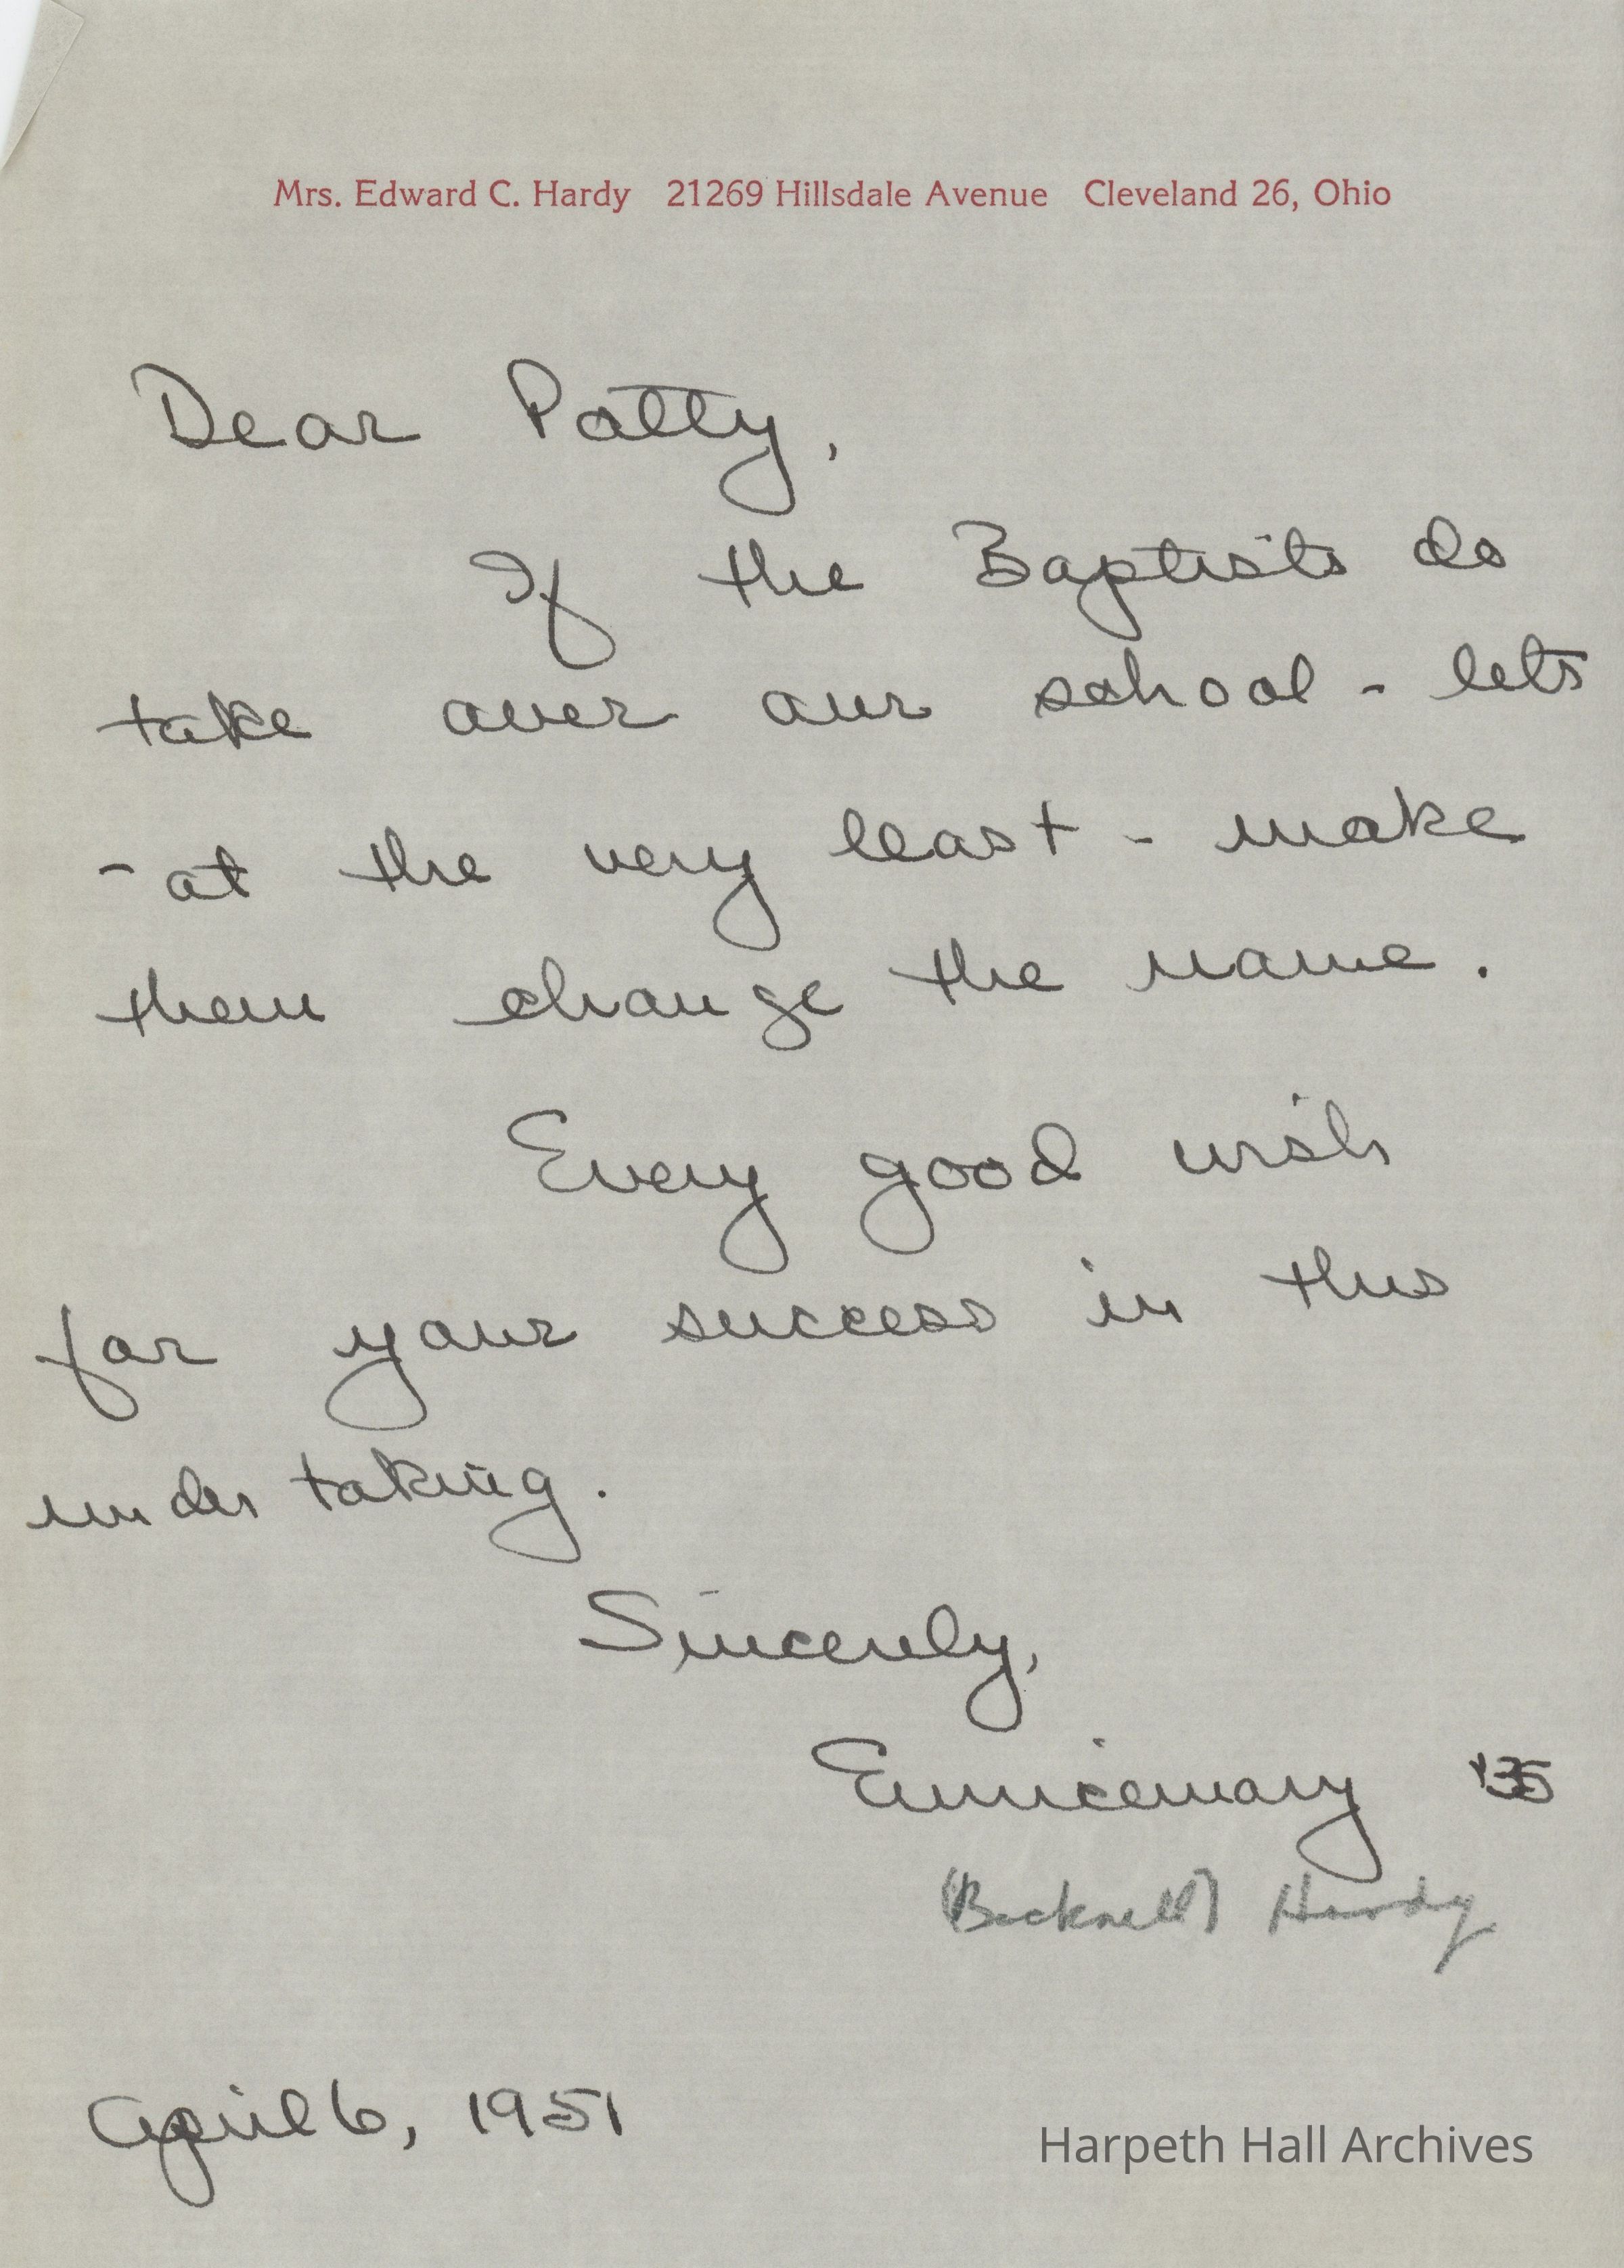 Mrs. Edward C. Hardy 21269 Hillsdale Avenue Cleveland 26, Ohio
Dear Patty,
If the Baptists do
take over our school - lets
- at the very least - make
them change the name.
Every good wish
for your success in this
undertaking.
Sincerely,
Eunicemary '35
(Bucknell) Hardy
April 6, 1951
Harpeth Hall Archives